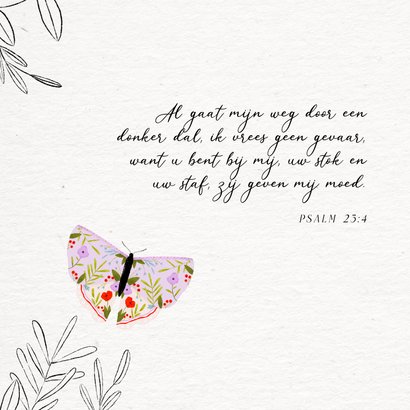 Al gaat mijn weg door een
donker dal, ik vrees geen gevaar,
want u bent bij mij, uw stok en
uw staf, zij geven mij moed.
PSALM 23:4